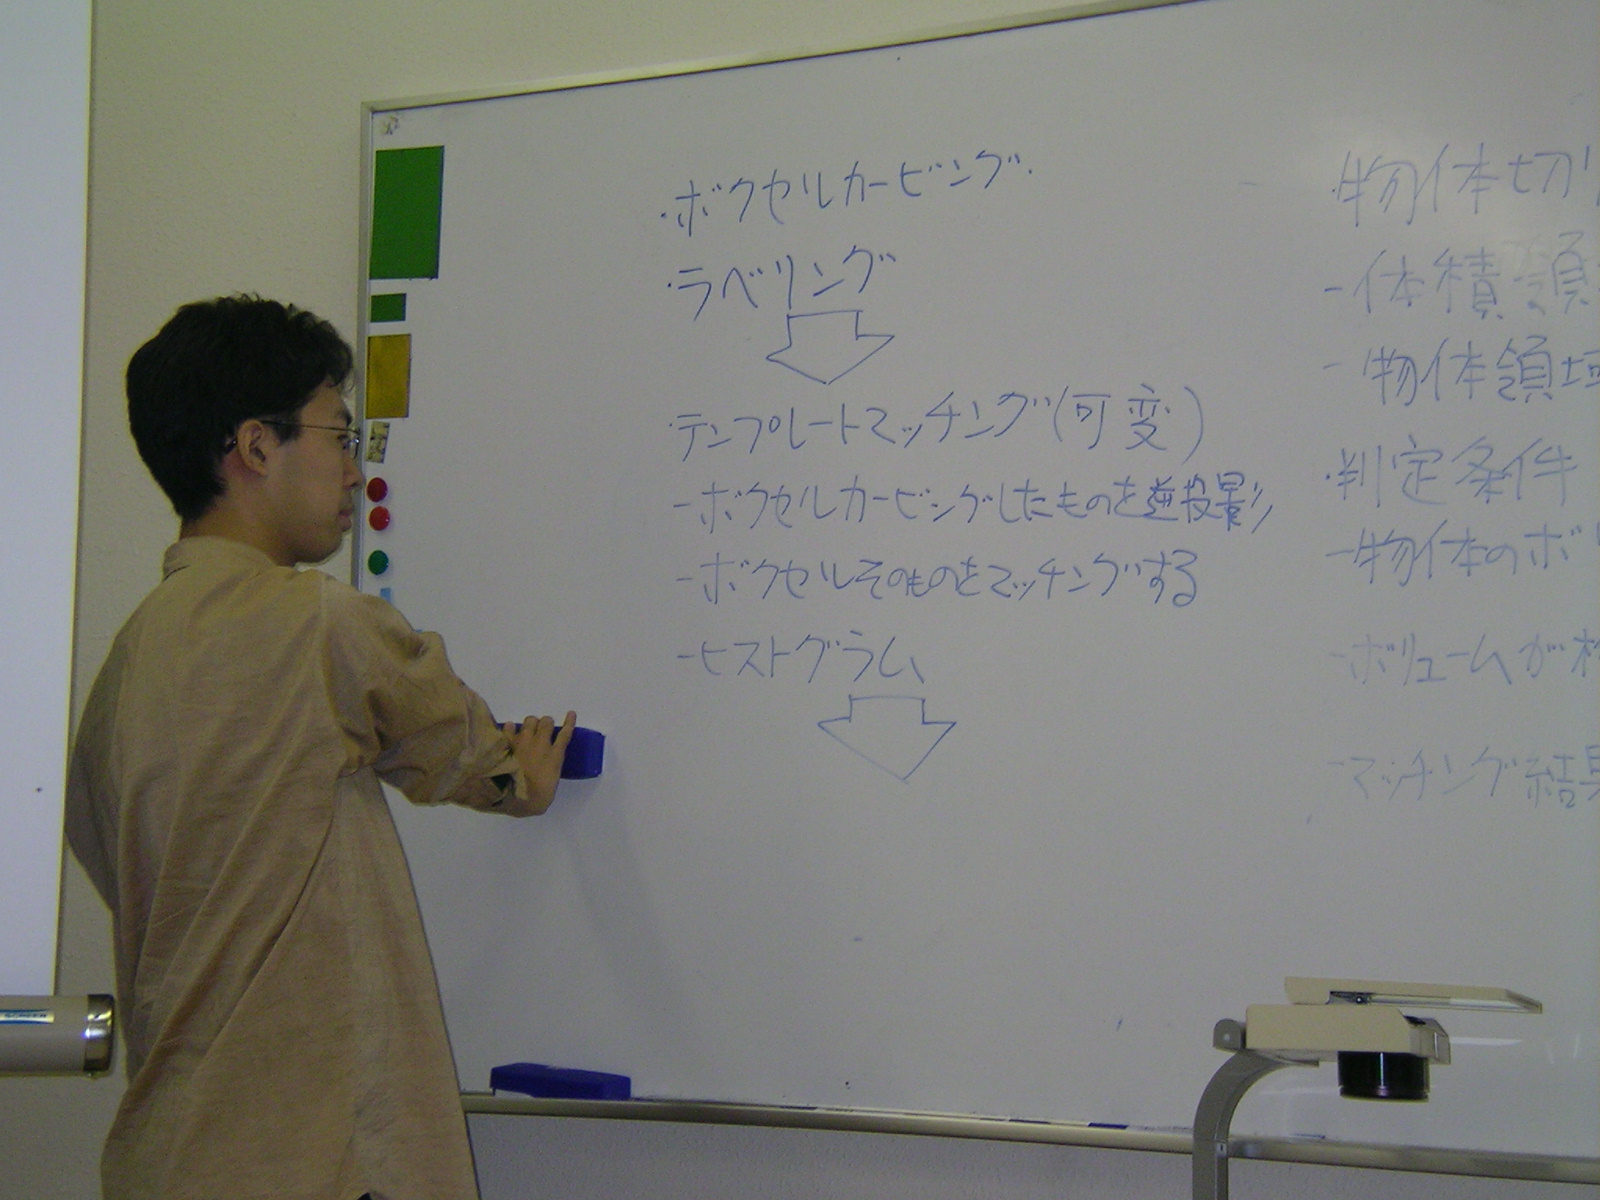 ・ボクセルカービング
・ラベリング
・テンプレートマッチング(可変)
-ボクセルカービングしたものを逆投影
-ボクセルそのものをマッチングする
-ヒストグラム
・物体切り
-体積
-物体領域
・判定条件
-物体のボ
-ボリュームが
マッチング結果
SCREEN